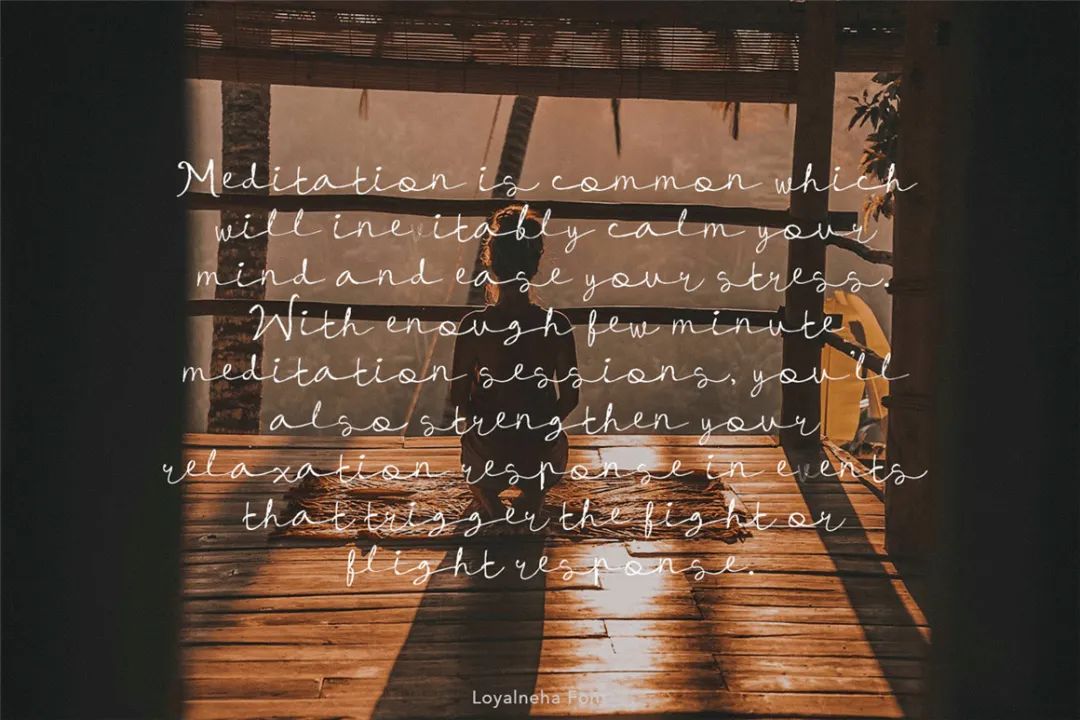 Meditation is common which
will inevitably calm your
mind and ease your stress.
With enough few minute
meditation sessions, you'll
also strengthen your
relaxation response in events
that trigger the fight or
flight response.
Loyalneha Font